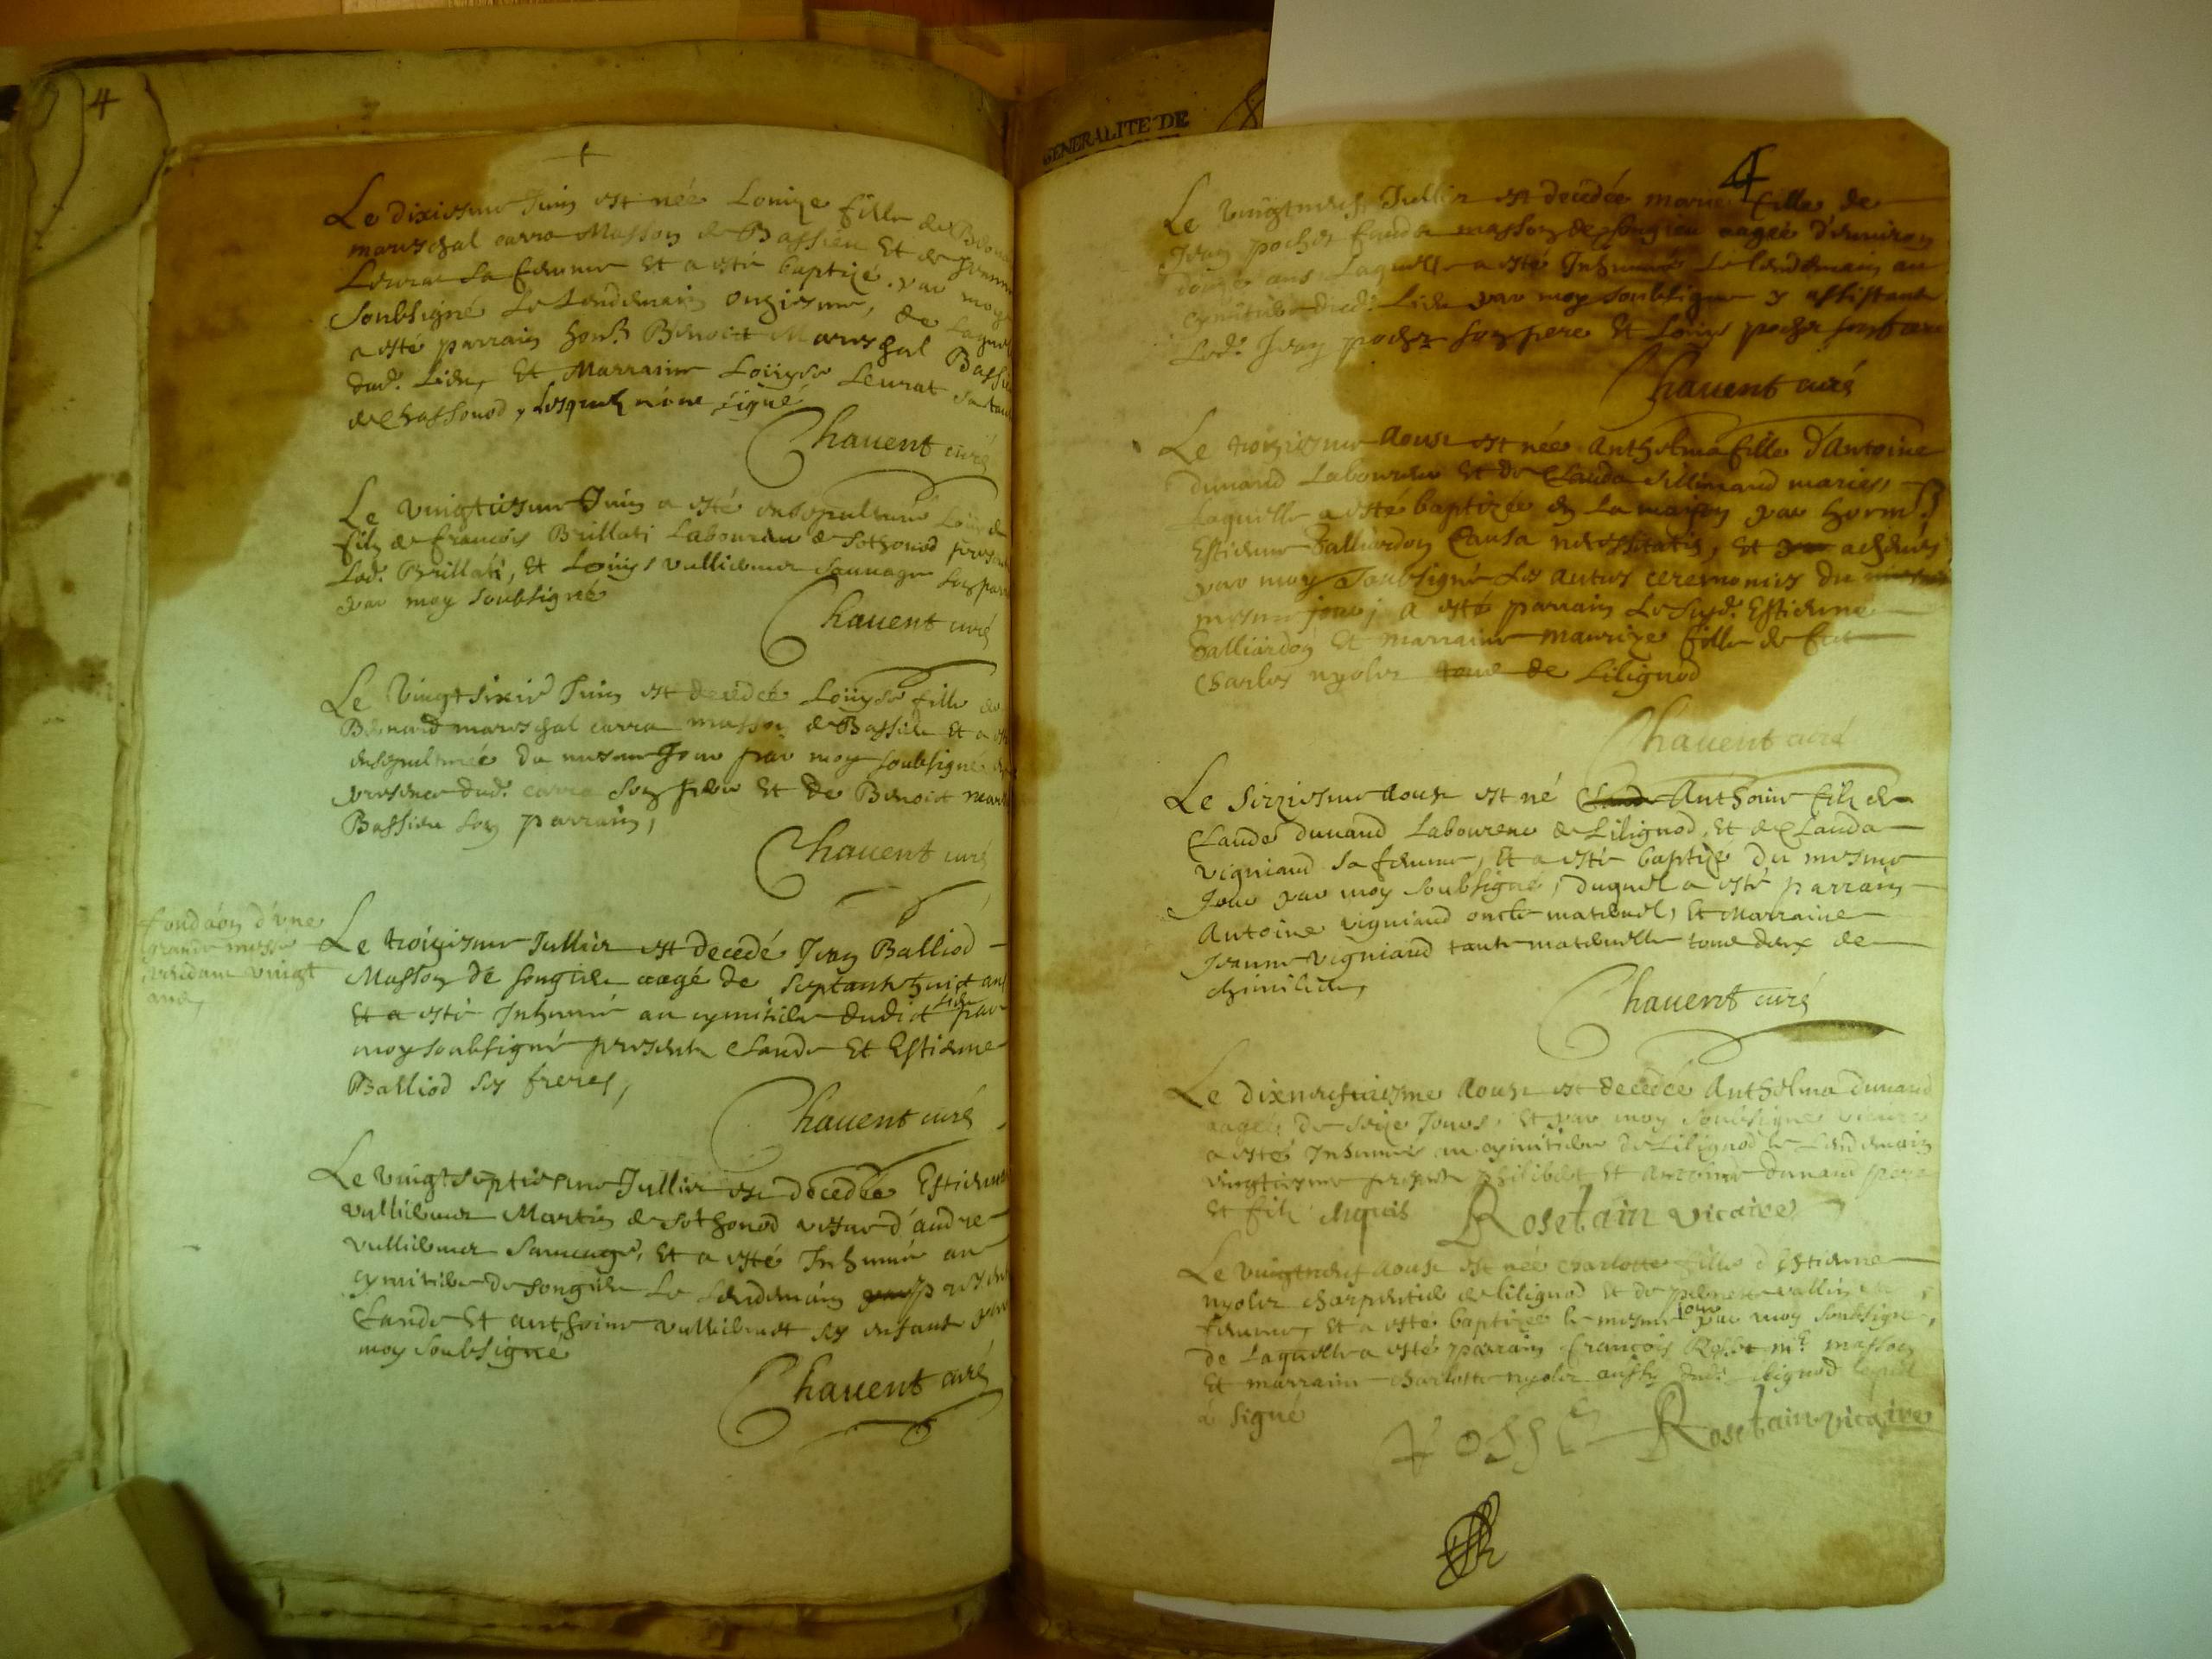 4
Le dixiesme Juin est née Louize fille de
mareschal carra Masson de Bassieu Et de
Leurat sa femme Et a esté baptizé par moy
soubsigné Le Lendemain onziesme, de Laquel
a esté parrain hon. Benoict Mareschal Bassi
dud. Lieu, Et Marraine Loüyse Leurat sa tan
de Chassonod, Lesquelz n'ont signé
Chauent curé
Le vingtiesme Juin a esté ensepulturé
filz de françois Brillati Laboureur de Sothonod
Lad. Brillati, Et Loüys vulliemer Sauuage son par
par moy soubsigné
Chauent curé
Le Vingt sixie Juin est decedée Loüyse fille de
mareschal carra masson de Bassieu Et a
ensepulturée du mesme Jour par moy soubsigné
presence dud. carra son pere Et de Benoict mar
Bassieu son parrain,
Chauent curé
fondaon d'une
grande messe
pendant vingt
ans
Le troiziesme Jullier est decedé Jean Balliod
Masson de songieu aagé de septante huict ans
Et a esté Inhumé au cymitiere dudict Lieu par
moy soubsigné presents Claude Et Estienne
Balliod ses freres,
Chauent curé
Le vingt septiesme Jullier est decedée Estienne
vulliemer Martin de Sothonod vefue d'andre
vulliemer Sauuage, Et a esté Inhumée au
cymitiere de songieu Le Lendemain presens
Claude Et anthoine vulliemer ses enfans par
moy soubsigné
Chauent curé
GENERALITE DE
4
Le vingtneuf Jullier est decedée marie fille de
Jean pochet masson de songieu aagée d'enuiron
douze ans Laquelle a esté Inhumée Le lendemain au
cymitiere dud. Lieu par moy soubsigné y assistant
Led. Jean pochet son pere Et Louys pochet son frere
Chauent curé
Le troiziesme Aoust est née Anthelma fille d'Antoine
dunand Laboureur Et de Clauda Sillimand maries,
Laquelle a esté baptizée en La maison par
Estienne Balliardon Causa necessitatis, Et acheué
par moy Soubsigné Les autres ceremonies du
mesme jour, a esté parrain Le susd. Estienne
Balliardon Et marraine maurize fille de
Charles nyolet de Lilignod
Chauent curé
Le Sixziesme Aoust est né Anthoine filz de
Claude dunand Laboureur de Lilignod, Et de Clauda
vigniand sa femme, Et a esté baptizé du mesme
Jour par moy soubsigné, duquel a esté parrain
Antoine vigniand oncle maternel, Et Marraine
Jeanne vigniand tante maternelle tous deux de
chimilieu,
Chauent curé
Le dixneufuiesme Aoust est decedée Anthelma dunand
aagée de seize Jours, Et par moy soubsigné vicaire
a esté Inhumée au cymitiere de Lilignod le Lendemain
vingtiesme presents philibert Et Antoine dunand pere
Et filz
Rosetain vicaire
Le vingtneuf Aoust est née Charlotte fille d'Estienne
nyolet charpentier de lilignod Et de
femme, Et a esté baptizée le mesme jour par moy soubsigné,
de Laquelle a esté parrain françois Rosset me. masson
Et marraine charlotte nyolet aussy dud. lilignod lequel
a signé
Rosetain vicaire